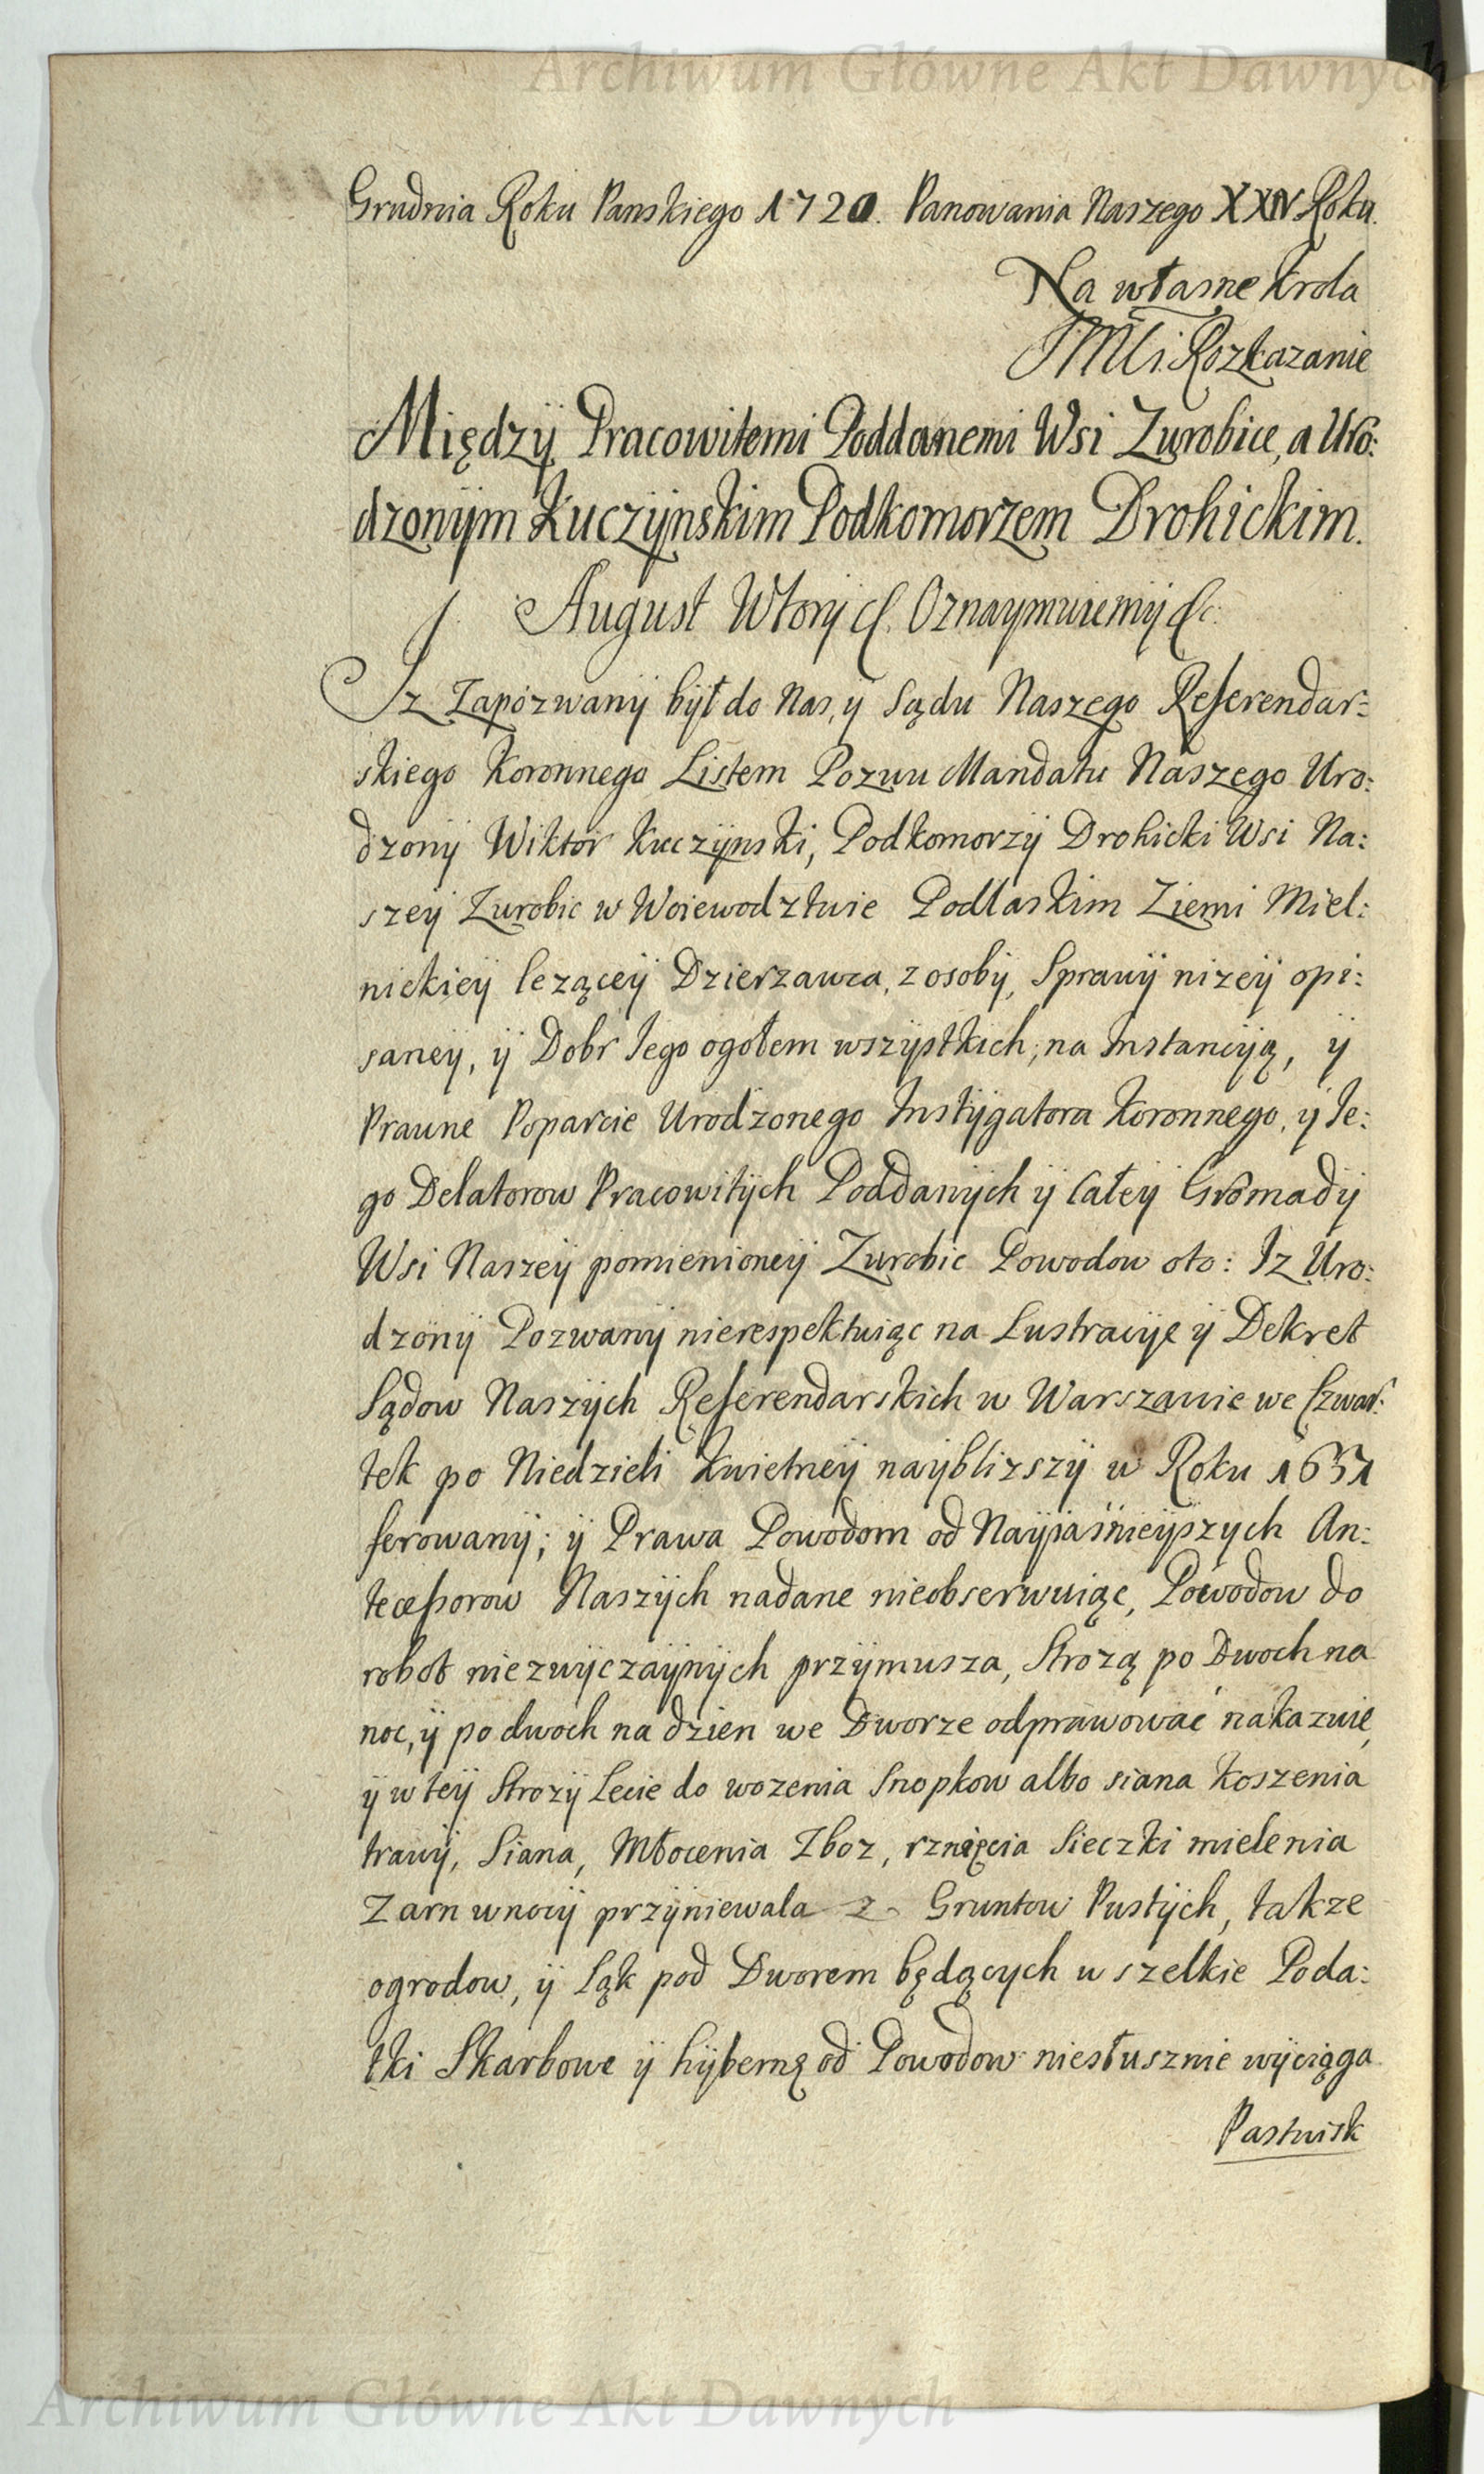 Archiwum Główne Akt Dawnych
Grudnia Roku Panskiego 1720. Panowania Naszego XXIV Roku.
Na własne Krola
JMCi Rozkazanie
Między Pracowitemi Poddanemi Wsi Zurobice, a Uro:
dzonym Kuczynskim Podkomorzem Drohickim.
August Wtory &. Oznaymuiemy &c.
Jz Zapozwany był do Nas, y Sądu Naszego Referendar:
skiego Koronnego Listem Pozwu Mandatu Naszego Uro:
dzony Wiktor Kuczynski, Podkomorzy Drohicki Wsi Na:
szey Zurobic w Woiewodztwie Podlaskim Ziemi Miel:
nickiey lezącey Dzierzawca, z osoby, Sprawy nizey opi:
saney, y Dobr Jego ogołem wszystkich, na Jnstancyą, y
Prawne Poparcie Urodzonego Jnstygatora Koronnego, y Je:
go Delatorow Pracowitych Poddanych y Całey Gromady
Wsi Naszey pomienioney Zurobic Powodow oto: Jz Uro:
dzony Pozwany nierespektuiąc na Lustracye y Dekret
Sądow Naszych Referendarskich w Warszawie we Czwar:
tek po Niedzieli Kwietney nayblizszy w Roku 1631
ferowany; y Prawa Powodom od Nayiaśnieyszych An:
tecessorow Naszych nadane nieobserwuiąc, Powodow do
robot niezwyczaynych przymusza, Strozą po Dwoch na
noc, y po dwoch na dzien we Dworze odprawować nakazuie,
y w tey Strozy Lecie do wozenia Snopkow albo siana Koszenia
trawy, Siana, Młocenia Zboz, rznięcia Sieczki mielenia
Zarn wnocy przyniewala z Gruntow Pustych, takze
ogrodow, y Łąk pod Dworem będących wszelkie Poda:
tki Skarbowe y hybernę od Powodow niesłusznie wyciąga
Pastwisk
Archiwum Główne Akt Dawnych